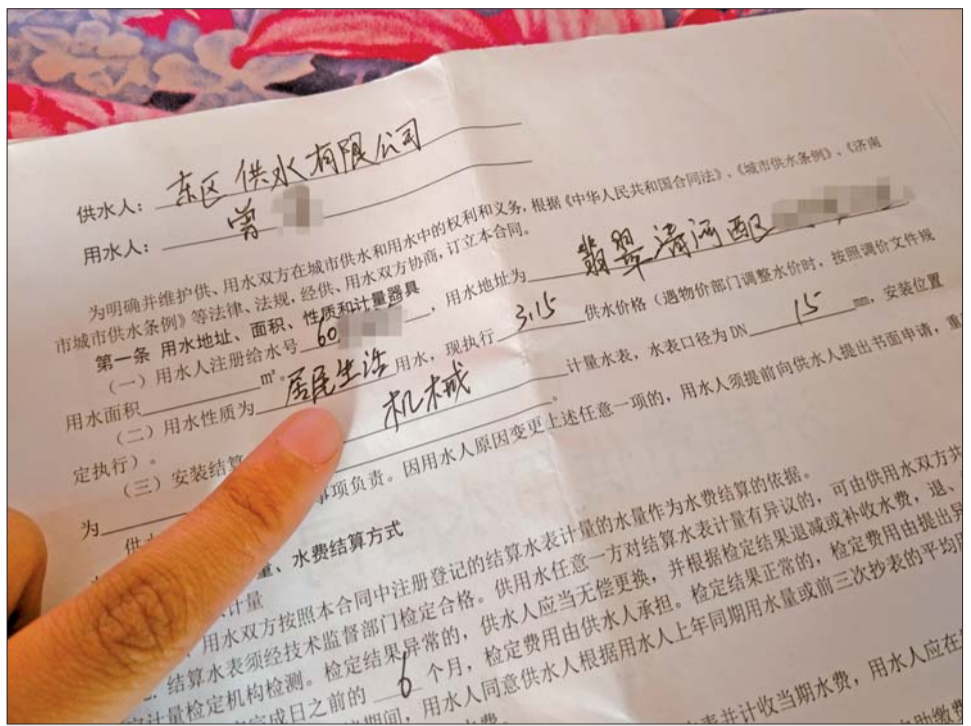 供水人：东区供水有限公司
用水人：曾
为明确并维护供、用水双方在城市供水和用水中的权利和义务，根据《中华人民共和国合同法》、《城市供水条例》、《济南
市城市供水条例》等法律、法规，经供、用水双方协商，订立本合同。
第一条 用水地址、面积、性质和计量器具
（一）用水人注册给水号 60 ，用水地址为 翡翠清河配
用水面积 m²。
（二）用水性质为 居民生活 用水，现执行 3.15 供水价格（遇物价部门调整水价时，按照调价文件规
定执行）。
（三）安装结算 机械 计量水表，水表口径为 DN 15 mm，安装位置
为 。
供 事项负责。因用水人原因变更上述任意一项的，用水人须提前向供水人提出书面申请，重
量、水费结算方式
计量
用水双方按照本合同中注册登记的结算水表计量的水量作为水费结算的依据。
结算水表须经技术监督部门检定合格。供用水任意一方对结算水表计量有异议的，可由供用水双方共
定计量检定机构检测。检定结果异常的，供水人应当无偿更换，并根据检定结果退减或补收水费，退、
完成日之前的 6 个月，检定费用由供水人承担。检定结果正常的，检定费用由提出异
期间，用水人同意供水人根据用水人上年同期用水量或前三次抄表的平均用
水费。 表并计收当期水费，用水人应在